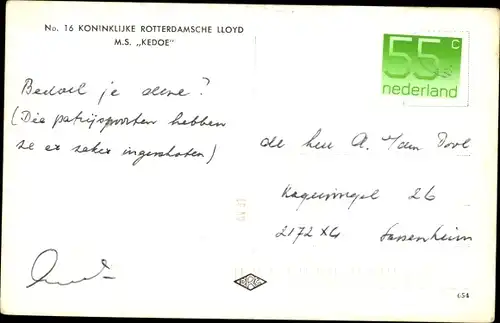 No. 16 KONINKLIJKE ROTTERDAMSCHE LLOYD
M.S. „KEDOE"
55 c
nederland
Bedoel je deze?
(Die patrijspoorten hebben
ze er zeker ingeschoten)
de heer A. v/dan
26
2172 XG Sassenheim
654